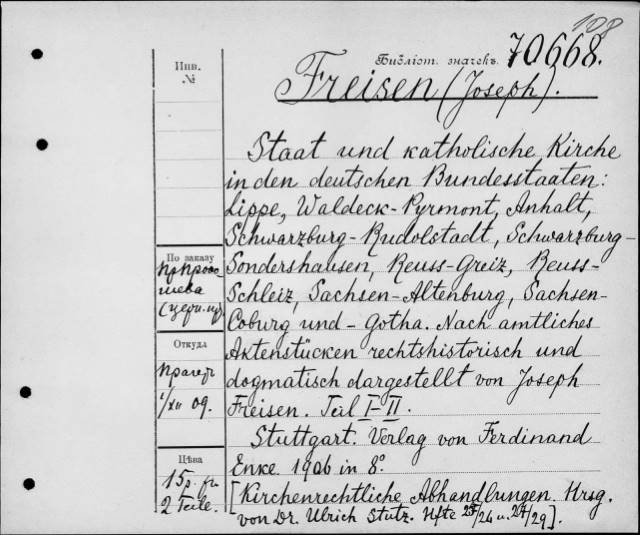 108
Библіот. значекъ 70668.
Инв.
№
Freisen (Joseph).
Staat und katholische Kirche
in den deutschen Bundesstaaten:
Lippe, Waldeck-Pyrmont, Anhalt,
Schwarzburg-Rudolstadt, Schwarzburg-
Sondershausen, Reuss-Greiz, Reuss-
Schleiz, Sachsen-Altenburg, Sachsen-
Coburg und-Gotha. Nach amtliches
Aktenstücken rechtshistorisch und
dogmatisch dargestellt von Joseph
Freisen. Teil I-II.
Stuttgart. Verlag von Ferdinand
Enke. 1906 in 8°.
[Kirchenrechtliche Abhandlungen. Hrsg.
von Dr. Ulrich Stutz. Hfte 25/26 u. 27/29].
По заказу
Откуда
09.
Цѣна
15 р.
2 Teile.